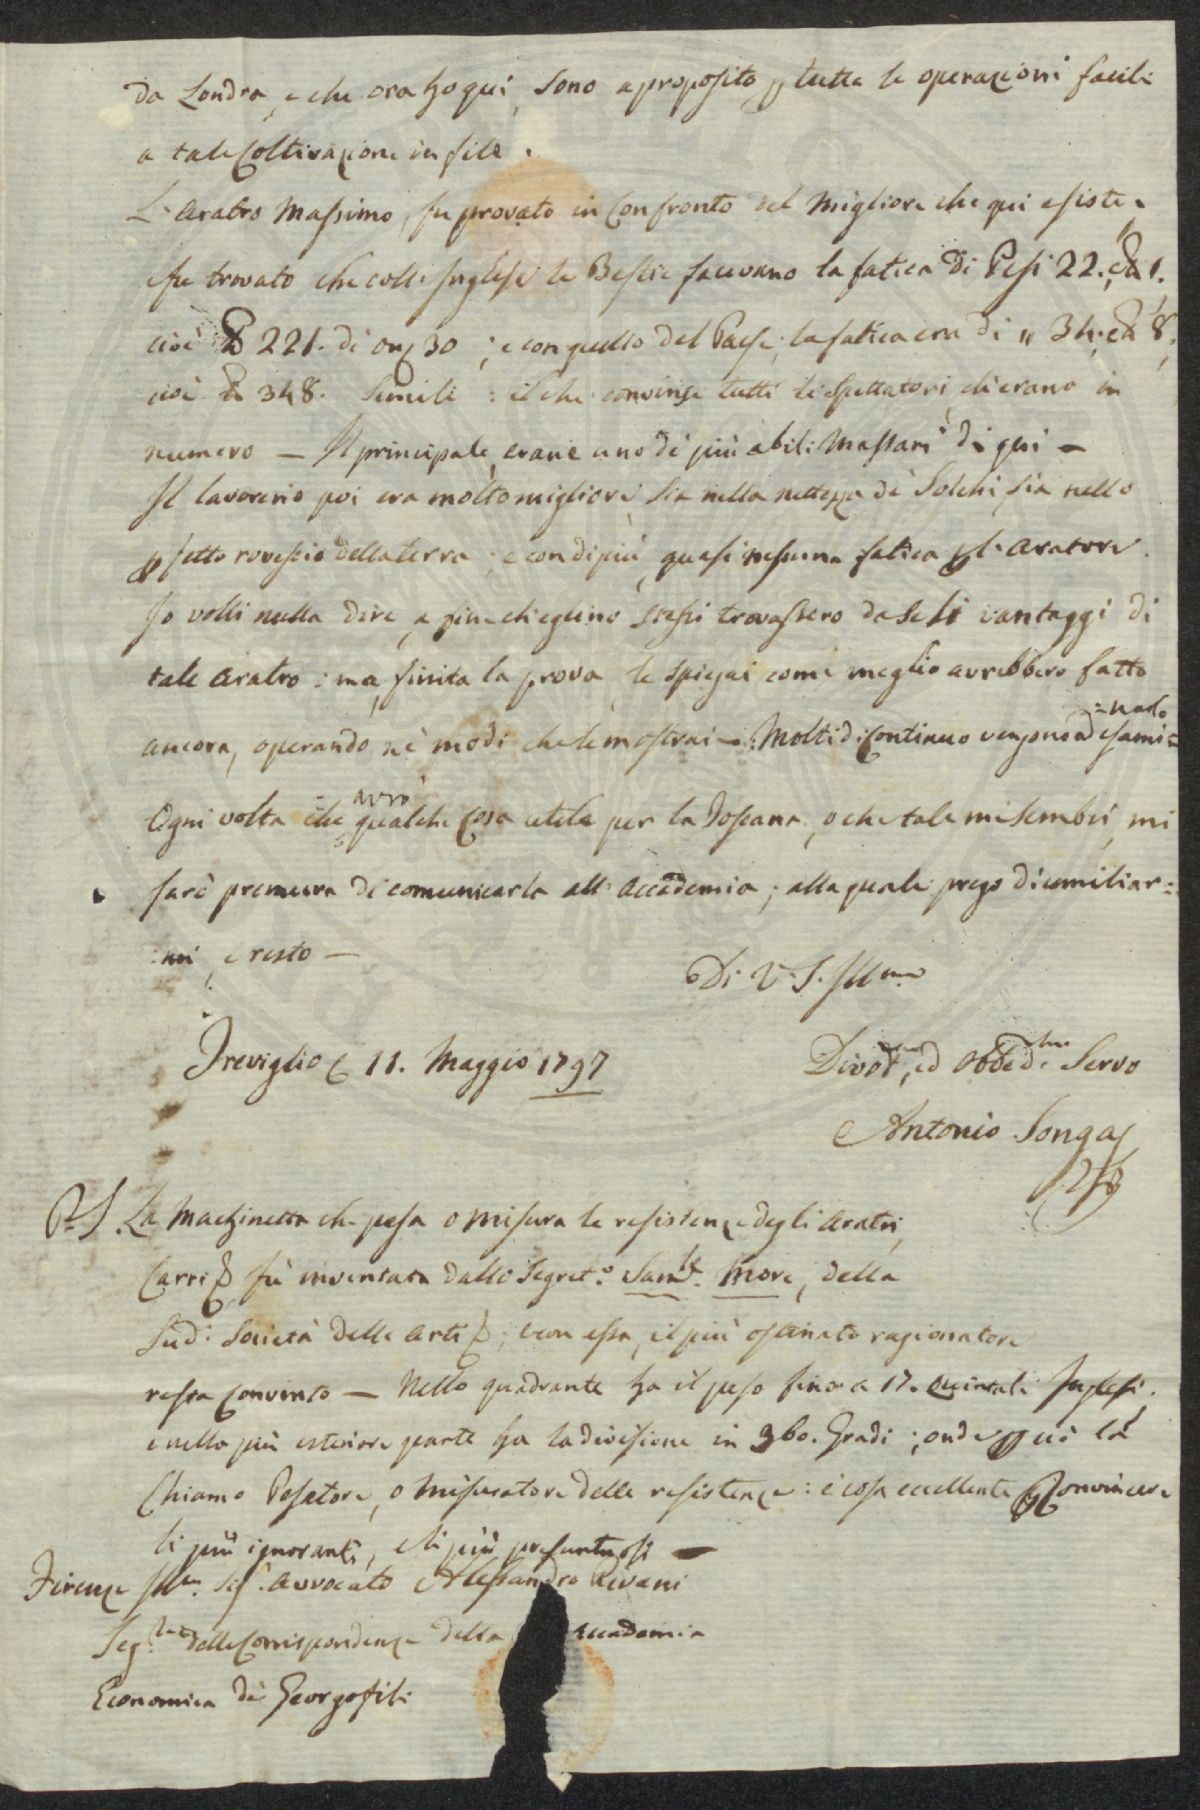 da Londra, e che ora ho qui, sono a proposito p tutte le operazioni facili
a tale Coltivazione in file.
L'Aratro Massimo, fu provato in confronto del migliore che qui esiste,
e fu trovato che coll'Inglese le Bestie facevano la fatica di Pesi 22. e 1.
cioè 221. di onz 30; e con quello del Paese, la fatica era di " 34. e 8,
cioè 348. simili: il che convinse tutti li Spettatori, ch'erano in
numero — Il principale, erane uno de più abili Massari di qui —
Il lavorerio poi era molto migliore sia nella nettezza de Solchi, sia nello
pfetto rovescio della terra; e con di più, quasi nessuna fatica p l'Aratore.
Io volli nulla dire, a fine ch'eglino stessi trovassero da se li vantaggi di
tale Aratro: ma, finita la prova, le spiegai come meglio avrebbero fatto
ancora, operando ne' modi che le mostrai — Molti di continuo vengono ad esami=
=narlo
Ogni volta che avrò qualche cosa utile per la Toscana, o che tale mi sembri, mi
farò premura di comunicarla all'Accademia; alla quale prego di umiliar=
=mi, e resto —
Di V. S. Illma
Treviglio 11. Maggio 1797
Divotmo, ed Obbedmo Servo
Antonio Songa
P. S. La Machinetta che pesa o misura le resistenze degli Aratri,
Carri, fù inventata dallo Segreto Samle. More, della
Sud. Società delle Arti; e con essa, il più ostinato ragionatore
resta convinto — Nello quadrante ha il peso fino a 17. Quintali Inglesi,
e nella più esteriore parte ha la divisione in 360. Gradi; onde p ciò la
Chiamo Pesatore, o Misuratore delle resistenze: è cosa eccellente p Convincere
li più ignoranti, e li più presuntuosi —
Firenze Illmo Sigr. Avvocato Alessandro Rivani
Segrio delle Corrispondenze della Accademia
Economica de' Georgofili